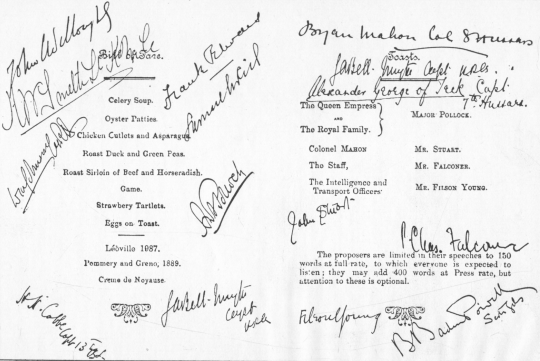 Bill of Fare.
Celery Soup.
Oyster Patties.
Chicken Cutlets and Asparagus.
Roast Duck and Green Peas.
Roast Sirloin of Beef and Horseradish.
Game.
Strawbery Tartlets.
Eggs on Toast.
Léoville 1987.
Pommery and Greno, 1889.
Creme de Noyause
Frank Rhodes
John Willoughby
Gaskell-
Capt
Bryan Mahon Col 8 Hussars
Toasts.
Gaskell- Capt
Alexander George of Teck Capt.
7th Hussars
The Queen Empress
AND
The Royal Family.
Major Pollock.
Colonel Mahon Mr. Stuart.
The Staff, Mr. Falconer.
The Intelligence and
Transport Officers Mr. Filson Young.
John Stuart
Chas. Falconer
The proposers are limited in their speeches to 150
words at full rate, to which everyone is expected to
listen; they may add 400 words at Press rate, but
attention to these is optional.
Filson Young
Baden Powell